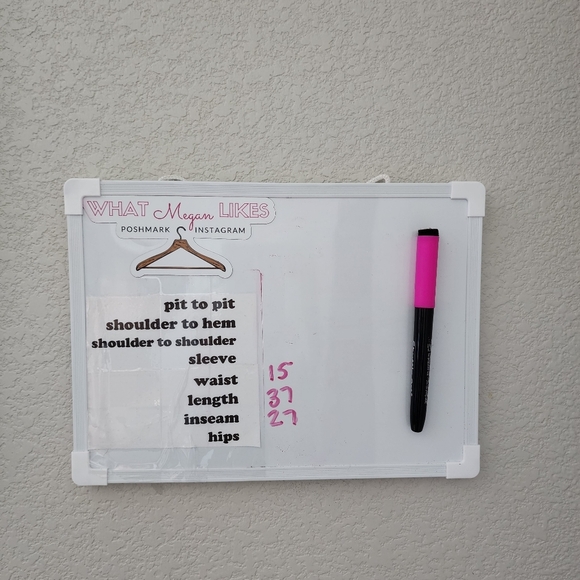 WHAT Megan LIKES
POSHMARK INSTAGRAM
pit to pit
shoulder to hem
shoulder to shoulder
sleeve
waist 15
length 37
inseam 27
hips